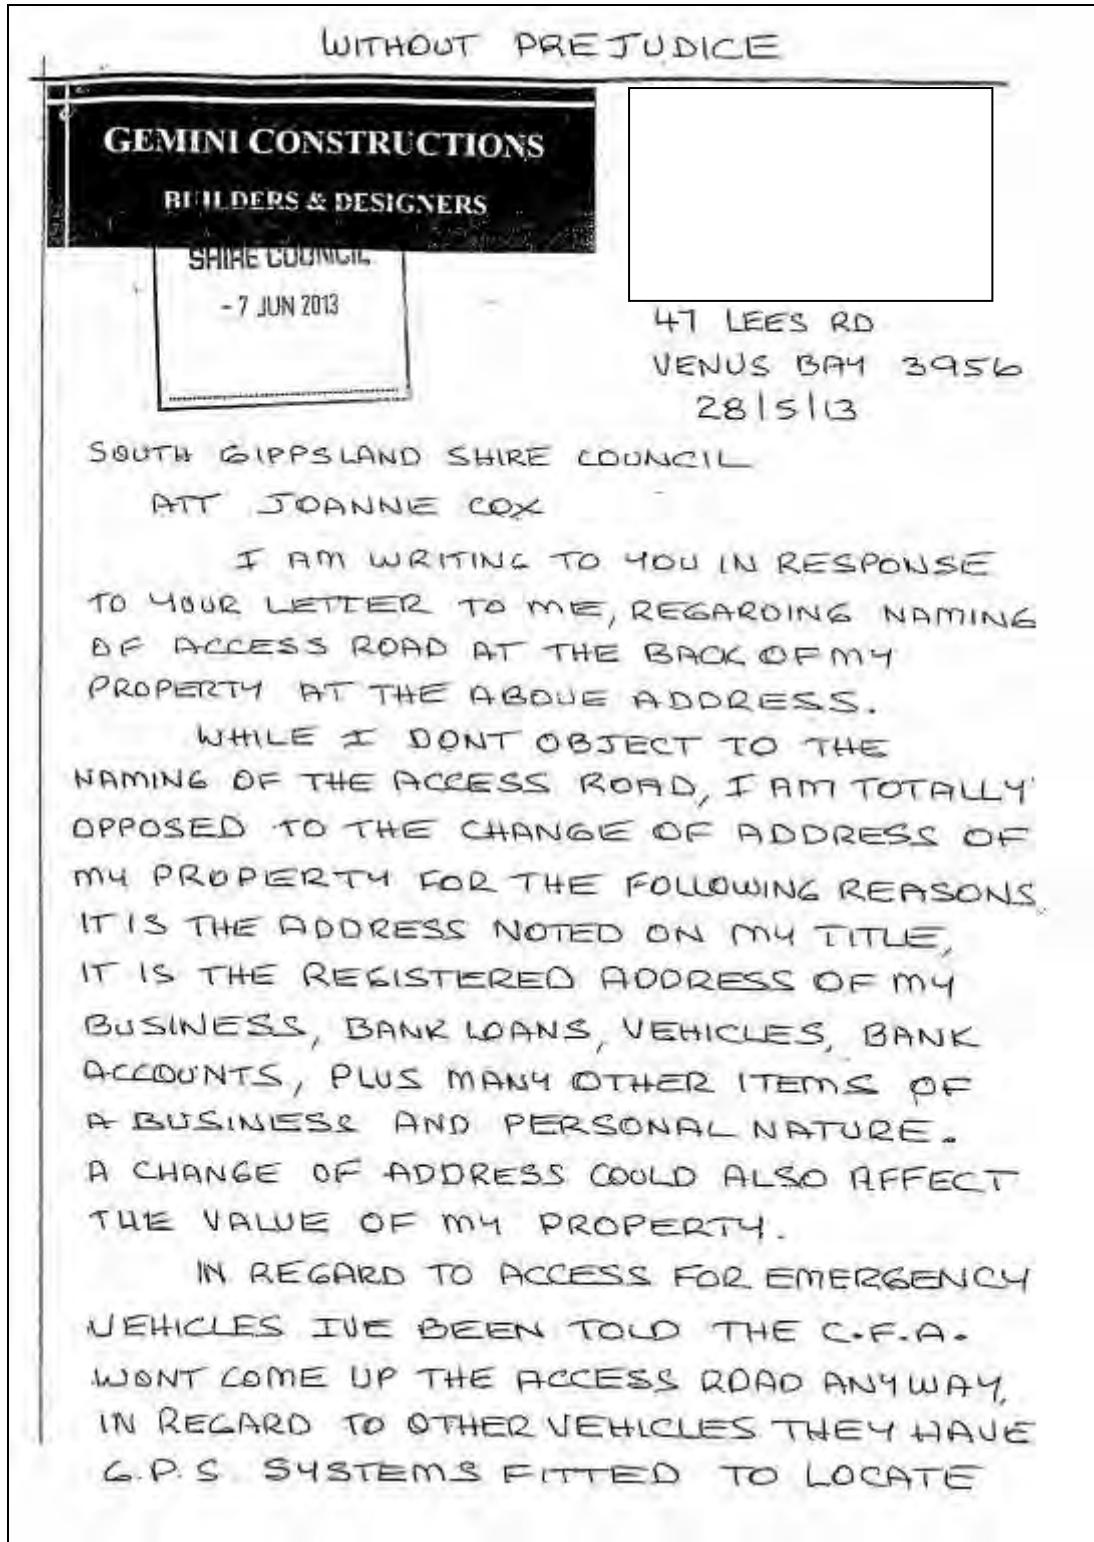 WITHOUT PREJUDICE
GEMINI CONSTRUCTIONS
BUILDERS & DESIGNERS
SHIRE COUNCIL
- 7 JUN 2013
47 LEES RD
VENUS BAY 3956
28/5/13
SOUTH GIPPSLAND SHIRE COUNCIL
ATT JOANNE COX
I AM WRITING TO YOU IN RESPONSE
TO YOUR LETTER TO ME, REGARDING NAMING
OF ACCESS ROAD AT THE BACK OF MY
PROPERTY AT THE ABOVE ADDRESS.
WHILE I DONT OBJECT TO THE
NAMING OF THE ACCESS ROAD, I AM TOTALLY
OPPOSED TO THE CHANGE OF ADDRESS OF
MY PROPERTY FOR THE FOLLOWING REASONS.
IT IS THE ADDRESS NOTED ON MY TITLE,
IT IS THE REGISTERED ADDRESS OF MY
BUSINESS, BANK LOANS, VEHICLES, BANK
ACCOUNTS, PLUS MANY OTHER ITEMS OF
A BUSINESS AND PERSONAL NATURE.
A CHANGE OF ADDRESS COULD ALSO AFFECT
THE VALUE OF MY PROPERTY.
IN REGARD TO ACCESS FOR EMERGENCY
VEHICLES IVE BEEN TOLD THE C.F.A.
WONT COME UP THE ACCESS ROAD ANYWAY,
IN REGARD TO OTHER VEHICLES THEY HAVE
G.P.S. SYSTEMS FITTED TO LOCATE